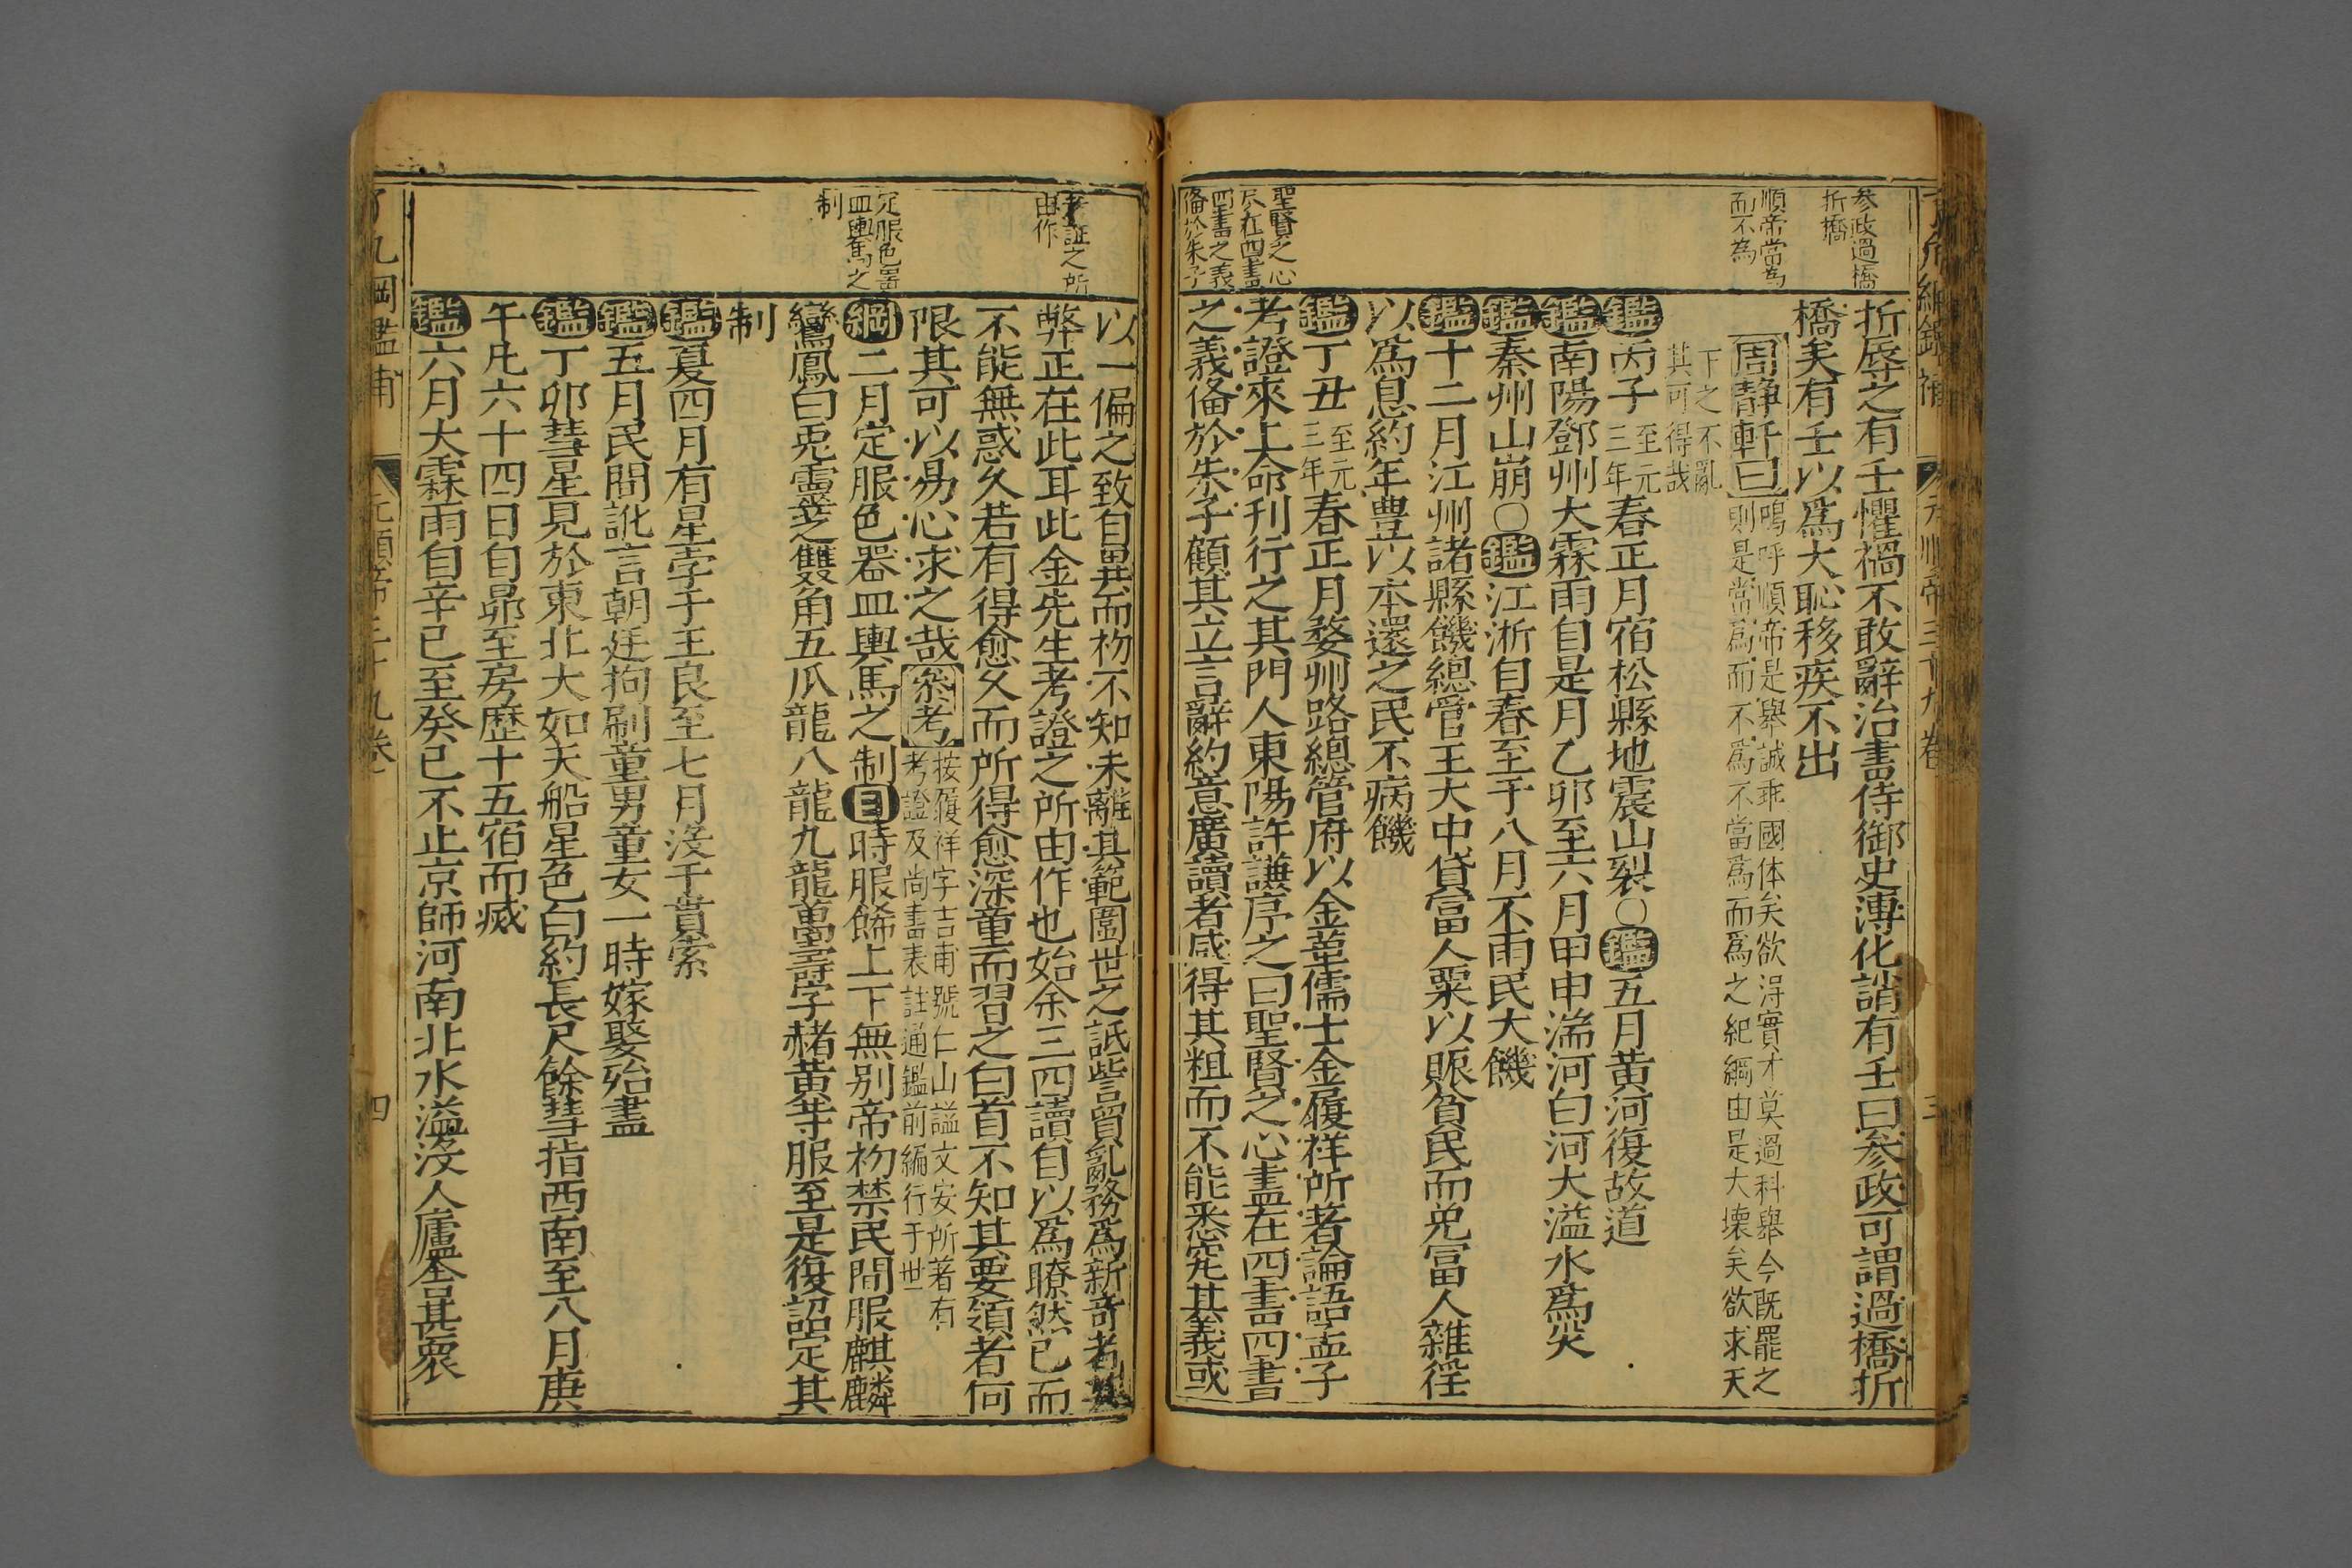 參政過橋
折橋
順帝當為
而不為
聖賢之心
尽在四書
四書之義
備於朱子
折辱之有壬懼禍不敢辭治書侍御史溥化誚有壬曰參政可謂過橋折
橋矣有壬以爲大恥移疾不出
周靜軒曰
嗚呼順帝是舉誠乖國体矣欲淂實才莫過科舉今既罷之
則是當爲而不爲不當爲而爲之紀綱由是大壞矣欲求天
下之不亂
其可得哉
鑑丙子至元三年春正月宿松縣地震山裂〇鑑五月黄河復故道
鑑南陽鄧州大霖雨自是月乙卯至六月甲申湍河白河大溢水爲災
鑑秦州山崩〇鑑江浙自春至于八月不雨民大饑
鑑十二月江州諸縣饑總管王大中貸富人粟以賑貧民而免富人雜徭
以爲息約年豊以本還之民不病饑
鑑丁丑至元三年春正月婺州路總管府以金華儒士金履祥所著論語孟子
考證來上命刊行之其門人東陽許謙序之曰聖賢之心盡在四書四書
之義備於朱子顧其立言辭約意廣讀者咸得其粗而不能悉究其義或
三
考証之所
由作
定服色器
皿輿馬之
制
以一偏之致自異而初不知未離其範圍世之詆訾貿亂務爲新奇者其
弊正在此耳此金先生考證之所由作也始余三四讀自以爲瞭然已而
不能無惑久若有得愈久而所得愈深童而習之白首不知其要領者何
限其可以易心求之哉
叅考
按履祥字吉甫號仁山謚文安所著有
考證及尚書表註通鑑前編行于世
綱二月定服色器皿輿馬之制目時服餙上下無别帝初禁民間服麒麟
鸞鳳白兎靈芝雙角五爪龍八龍九龍萬壽字赭黄等服至是復詔定其
制
鑑夏四月有星孛于王良至七月沒于貫索
鑑五月民間訛言朝廷拘刷童男童女一時嫁娶殆盡
鑑丁卯彗星見於東北大如天船星色白約長尺餘彗指西南至八月庚
午凡六十四日自昴至房歴十五宿而滅
鑑六月大霖雨自辛已至癸已不止京師河南北水溢沒人廬舎甚衆
了凡綱鑑補
元順帝三十九卷
四